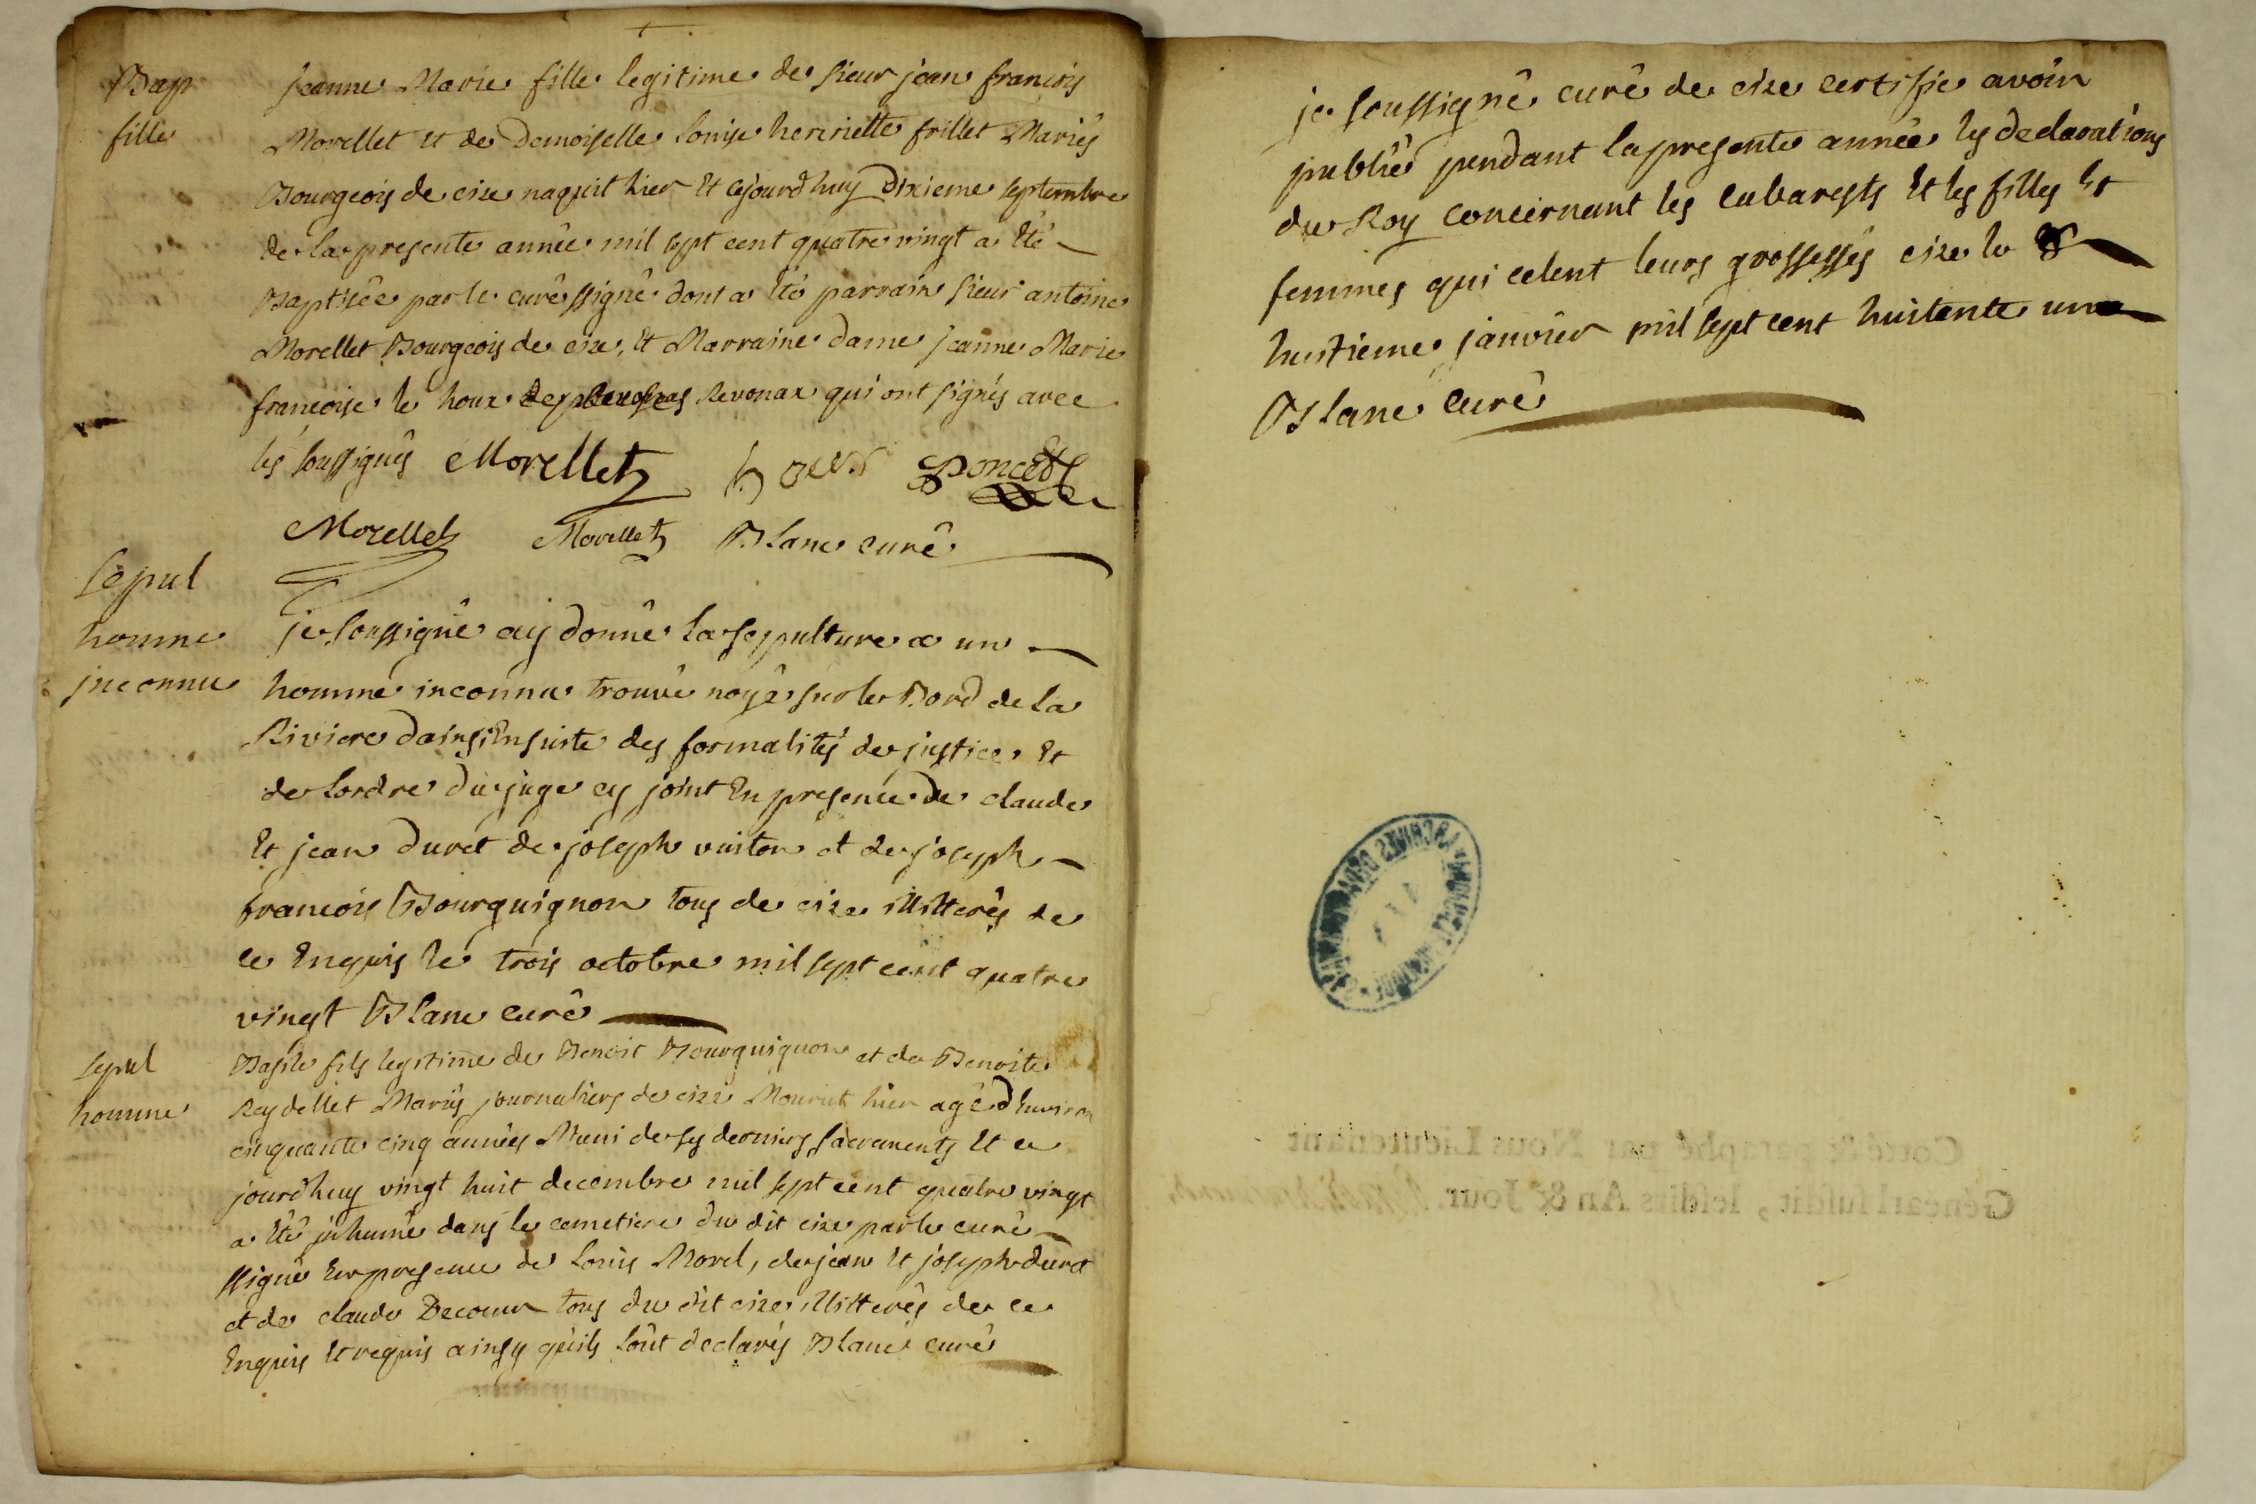 Bap
fille
jeanne Marie fille legitime de sieur jean francois
Morellet et de Demoiselle Louise henriette frillet Mariés
Bourgeois de cize naquit hier Et cejourdhuy Dixieme septembre
de la presente année mil sept cent quatre vingt a Eté
Baptisée par le curé ssigné dont a Eté parrain sieur antoine
Morellet Bourgeois de cize, Et Marraine dame jeanne Marie
francoise le houx Revonax qui ont signés avec
les soussignés Morellet houx Poncet
Morellet Morellet Blanc curé
sepul
homme
jnconnu
je soussigné aij donné la sepulture a un
homme inconnu trouvé noyé sur le Bord de la
Riviere dains Ensuite des formalités de justice Et
de Lordre du juge cy joint En presence de claude
Et jean duret de joseph vuiton et de joseph
francois Bourguignon tous de cize illitterés de
ce Enquis le trois octobre mil sept cent quatre
vingt Blanc curé
sepul
homme
Basile fils legitime de Benoit Bourguignon et de Benoite
Reydellet Mariés journaliers de cize Mourut hier agé dEnviron
cinquante cinq années Muni de ses derniers sacrements Et ce
jourdhuy vingt huit decembre mil sept cent quatre vingt
a Eté jnhumé dans le cemetiere du dit cize par le curé
ssigné En presence de Louis Morel, de jean Et joseph duret
et de claude Decoeur tous du dit cize illitterés de ce
Enquis Et requis ainsy quils sont declarés Blanc curé
je soussigné curé de cize certiffie avoir
publié pendant la presente année les declarations
du Roy concernant les cabarests Et les filles Et
femmes qui celent leurs grossesses cize le 8
huitieme janvier mil sept cent huitente un
Blanc curé
Cotté & paraphé par Nous Lieutenant
Général susdit, lesdits An & Jour.